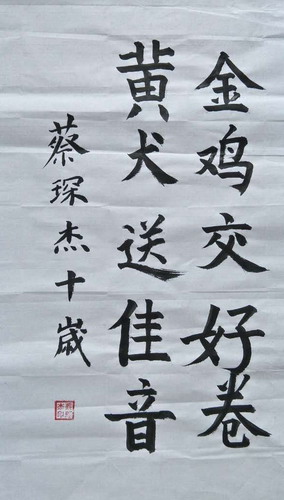 金鸡交好卷
黄犬送佳音
蔡琛杰十歲